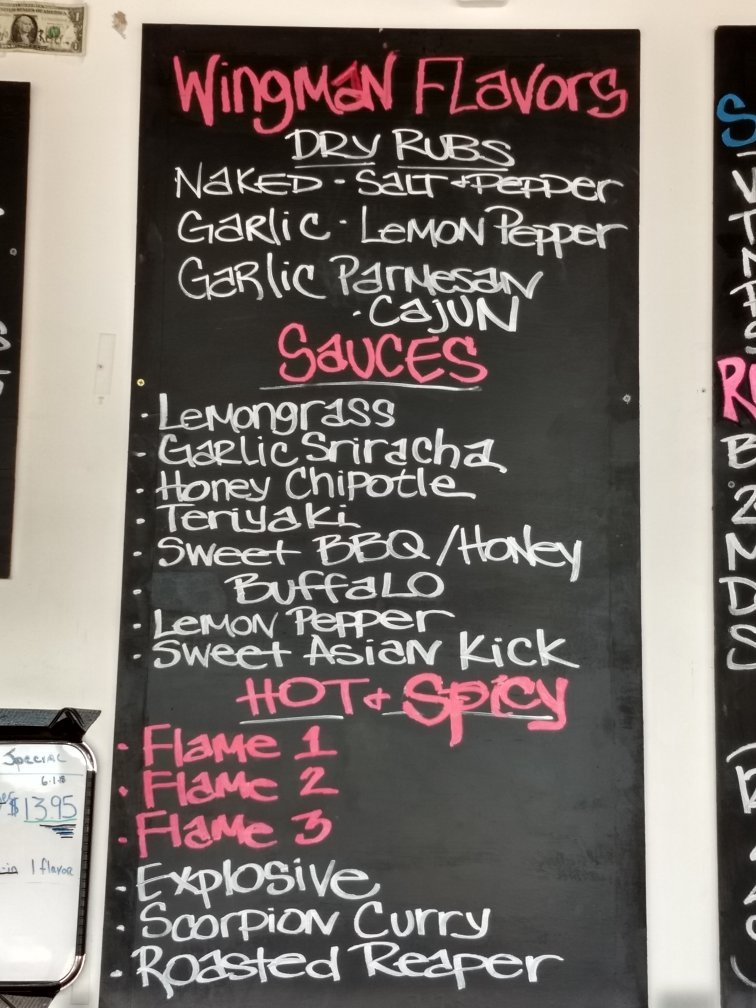 WINGMAN FLAVORS
DRY RUBS
NAKED - SALT + PEPPER
GARLIC - LEMON PEPPER
GARLIC PARMESAN
- CAJUN
SAUCES
- LEMONGRASS
- GARLIC SRIRACHA
- HONEY CHIPOTLE
- TERIYAKI
- SWEET BBQ / HONEY
- BUFFALO
- LEMON PEPPER
- SWEET ASIAN KICK
HOT + SPICY
- FLAME 1
- FLAME 2
- FLAME 3
- EXPLOSIVE
- SCORPION CURRY
- ROASTED REAPER
SPECIAL
$13.95
1 flavor